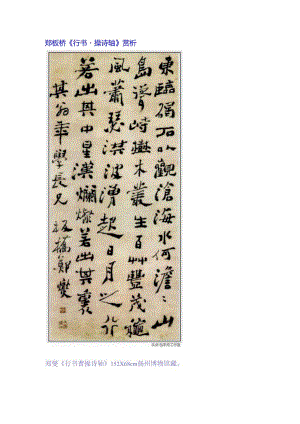 郑板桥《行书·操诗轴》赏析
東臨碣石以觀滄海水何澹〻山
島竦峙樹木叢生百草豐茂秋
風蕭瑟洪波湧起日月之行
若出其中星漢爛燦若出其裏
其翁年學長兄 板橋鄭燮
郑燮《行书曹操诗轴》152X68cm扬州博物馆藏。